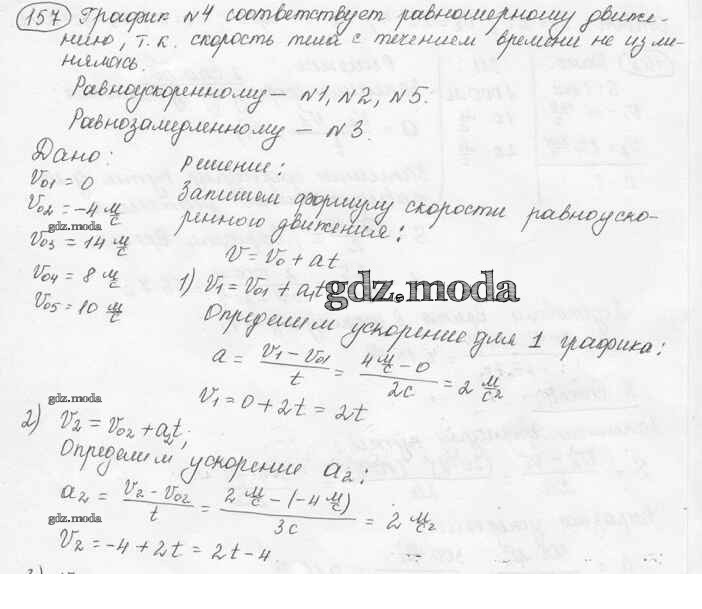 157 График №4 соответствует равномерному движе-
нию, т.к. скорость тела с течением времени не изме-
нялась.
Равноускоренному – №1, №2, №5.
Равнозамедленному – №3.
Дано:
V01 = 0
V02 = -4 м/с
gdz.moda
V03 = 14 м/с
V04 = 8 м/с
V05 = 10 м/с
Решение:
Запишем формулу скорости равноуско-
ренного движения:
V = V0 + at
1) V1 = V01 + a1t
gdz.moda
Определим ускорение для 1 графика:
a = (V1 - V01)/t = (4 м/с - 0)/2с = 2 м/с2
gdz.moda
V1 = 0 + 2t = 2t
2) V2 = V02 + a2t;
Определим ускорение a2:
a2 = (V2 - V02)/t = (2 м/с - (-4 м/с))/3с = 2 м/с2
gdz.moda
V2 = -4 + 2t = 2t - 4